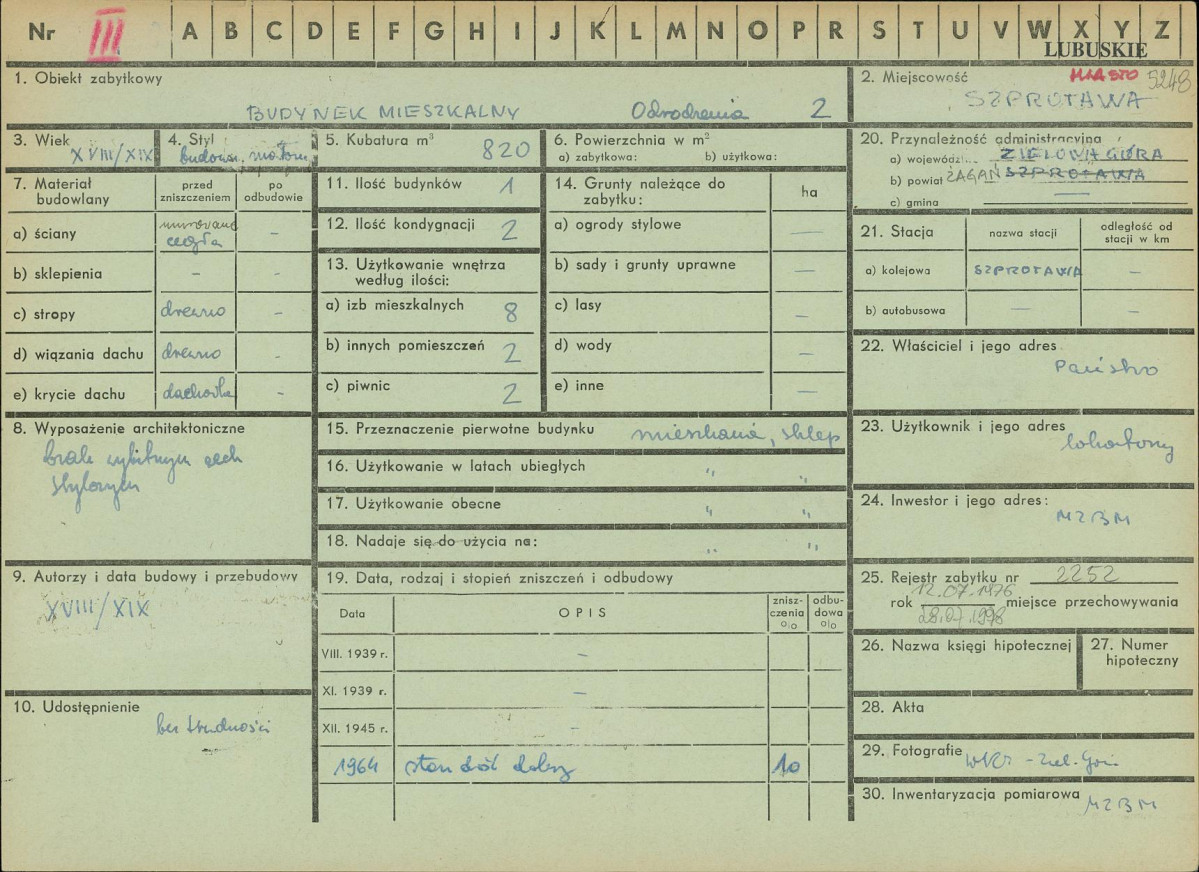 Nr III A B C D E F G H I J K L M N O P R S T U V W X Y Z
LUBUSKIE
1. Obiekt zabytkowy
BUDYNEK MIESZKALNY Odrodzenia 2
2. Miejscowość MIASTO 5248
SZPROTAWA
3. Wiek
XVIII/XIX
4. Styl
5. Kubatura m³ 820
6. Powierzchnia w m²
a) zabytkowa: b) użytkowa:
20. Przynależność administracyjna
a) wojewódz... ZIELONA GÓRA
b) powiat ŻAGAŃ SZPROTAWA
c) gmina —
7. Materiał budowlany
przed zniszczeniem
po odbudowie
a) ściany murowane cegła –
b) sklepienia – –
c) stropy drewno –
d) wiązania dachu drewno –
e) krycie dachu dachówka –
11. Ilość budynków 1
12. Ilość kondygnacji 2
13. Użytkowanie wnętrza
według ilości:
a) izb mieszkalnych 8
b) innych pomieszczeń 2
c) piwnic 2
14. Grunty należące do
zabytku: ha
a) ogrody stylowe —
b) sady i grunty uprawne —
c) lasy —
d) wody —
e) inne —
21. Stacja
nazwa stacji
odległość od
stacji w km
a) kolejowa SZPROTAWA –
b) autobusowa – –
22. Właściciel i jego adres
Państwo
8. Wyposażenie architektoniczne
brak wybitnym cech
stylowym
15. Przeznaczenie pierwotne budynku mieszkania, sklep
16. Użytkowanie w latach ubiegłych " "
17. Użytkowanie obecne " "
18. Nadaje się do użycia na: " "
23. Użytkownik i jego adres
lokatorzy
24. Inwestor i jego adres:
MZBM
9. Autorzy i data budowy i przebudowy
XVIII/XIX
10. Udostępnienie
bez trudności
19. Data, rodzaj i stopień zniszczeń i odbudowy
Data
OPIS
znisz-
czenia
%
odbu-
dowa
%
VIII. 1939 r. –
XI. 1939 r. –
XII. 1945 r. –
1964 stan dość dobry 10
25. Rejestr zabytku nr 2252
12.07.1976
rok miejsce przechowywania
26. Nazwa księgi hipotecznej
27. Numer
hipoteczny
28. Akta
29. Fotografie WKZ - Ziel. Góra
30. Inwentaryzacja pomiarowa MZBM